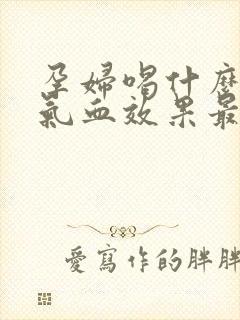 孕婦喝什麼
氣血效果最
愛寫作的胖胖